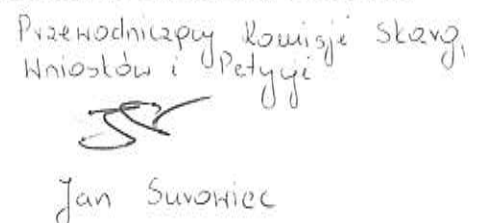 Przewodniczący Komisji Skarg,
Wniosków i Petycji
Jan Surowiec